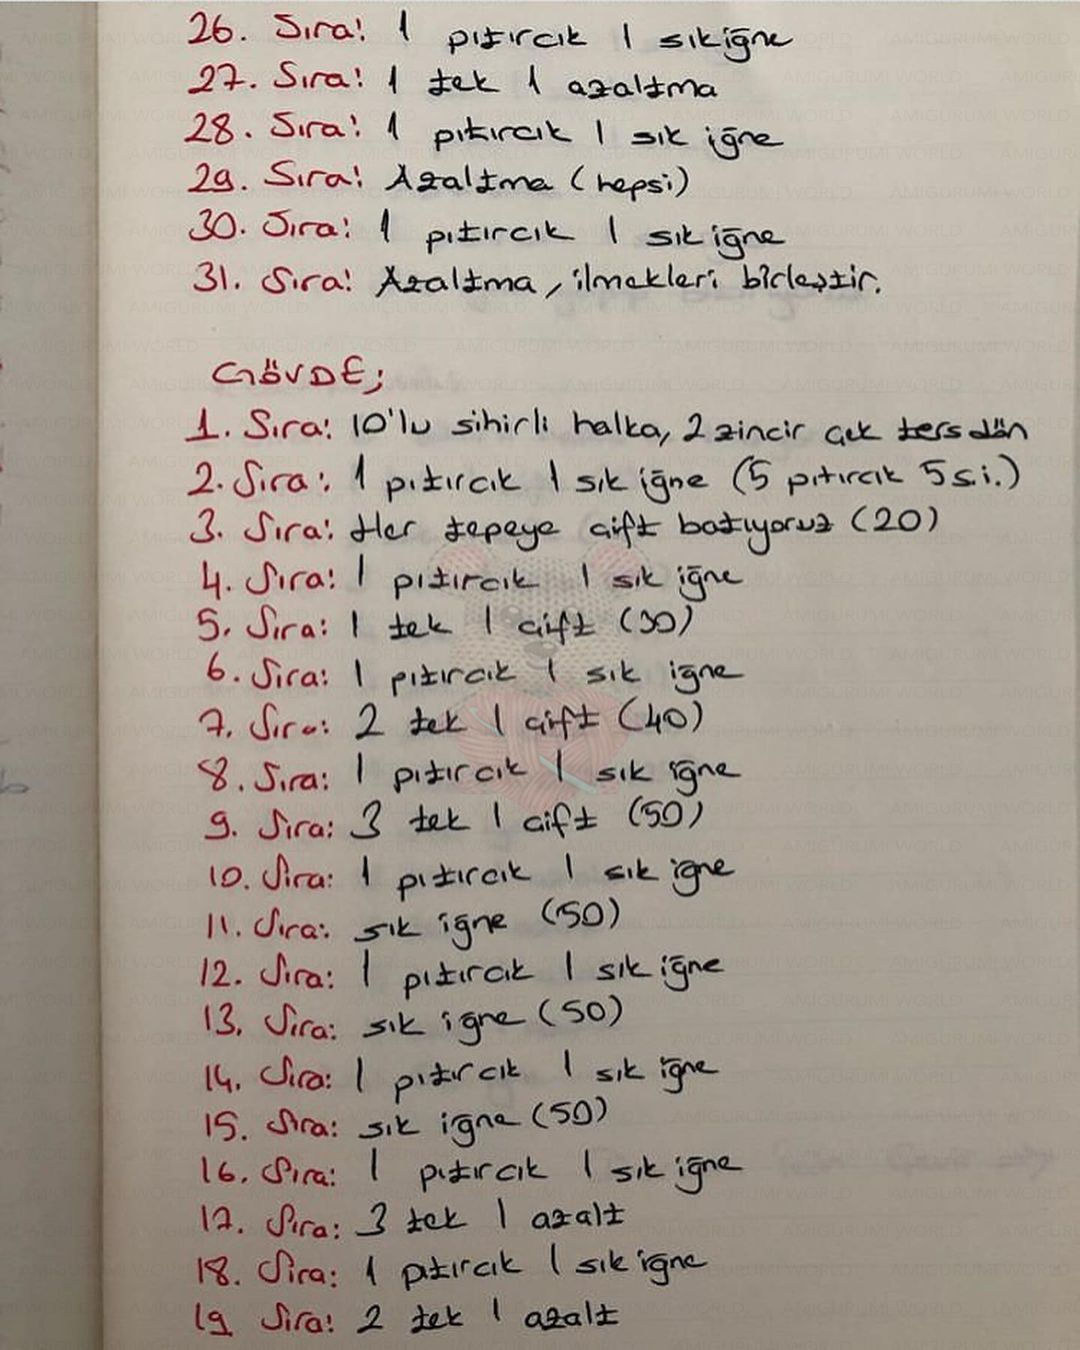 26. Sıra: 1 pıtırcık 1 sık iğne
27. Sıra: 1 tek 1 azaltma
28. Sıra: 1 pıtırcık 1 sık iğne
29. Sıra: Azaltma (hepsi)
30. Sıra: 1 pıtırcık 1 sık iğne
31. Sıra: Azaltma, ilmekleri birleştir.
GÖVDE;
1. Sıra: 10'lu sihirli halka, 2 zincir çek ters dön
2. Sıra: 1 pıtırcık 1 sık iğne (5 pıtırcık 5 s.i.)
3. Sıra: Her tepeye çift batıyoruz (20)
4. Sıra: 1 pıtırcık 1 sık iğne
5. Sıra: 1 tek 1 çift (30)
6. Sıra: 1 pıtırcık 1 sık iğne
7. Sıra: 2 tek 1 çift (40)
8. Sıra: 1 pıtırcık 1 sık iğne
9. Sıra: 3 tek 1 çift (50)
10. Sıra: 1 pıtırcık 1 sık iğne
11. Sıra: sık iğne (50)
12. Sıra: 1 pıtırcık 1 sık iğne
13. Sıra: sık iğne (50)
14. Sıra: 1 pıtırcık 1 sık iğne
15. Sıra: sık iğne (50)
16. Sıra: 1 pıtırcık 1 sık iğne
17. Sıra: 3 tek 1 azalt
18. Sıra: 1 pıtırcık 1 sık iğne
19 Sıra: 2 tek 1 azalt
AMIGURUMI WORLD